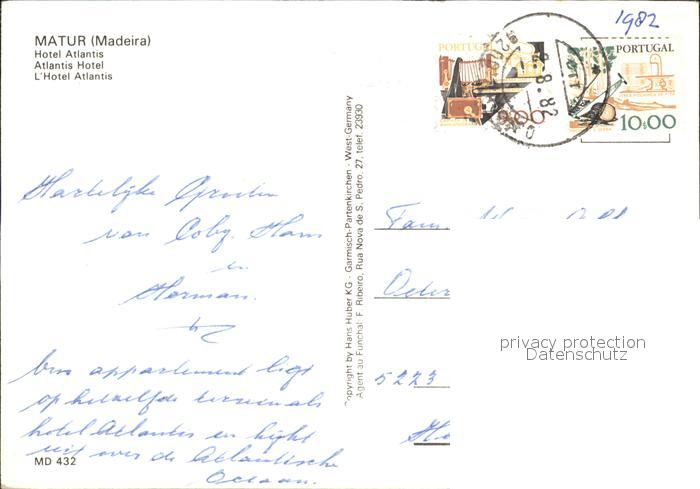 MATUR (Madeira)
Hotel Atlantis
Atlantis Hotel
L'Hotel Atlantis
1982
PORTUGAL
9.00
PORTUGAL
10$00
8.82
Copyright by Hans Huber KG - Garmisch-Partenkirchen - West-Germany
Agent au Funchal: F. Ribeiro, Rua Nova de S. Pedro, 27, telef. 23930
Hartelijke Groeten
van Coby, Hans
en
Herman.
Ons appartement ligt
op hetzelfde terrein als
hotel Atlantis en kijkt
uit over de Atlantische
Oceaan.
Fam.
5223
privacy protection
Datenschutz
MD 432